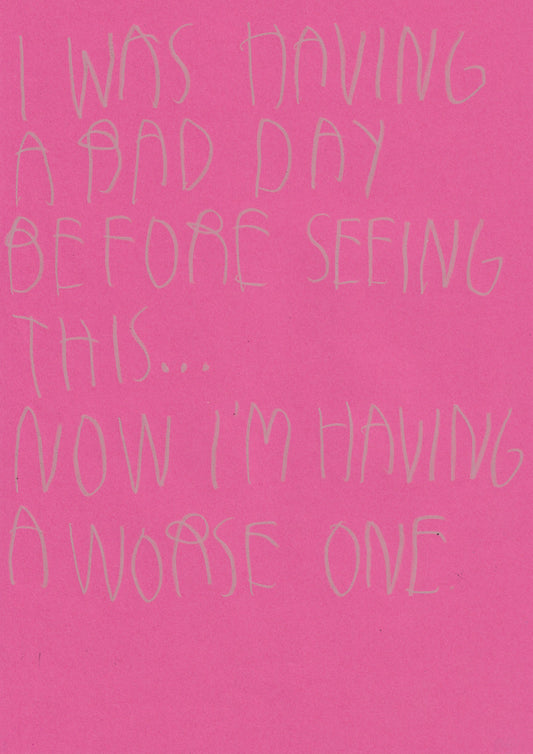 I WAS HAVING
A BAD DAY
BEFORE SEEING
THIS...
NOW I'M HAVING
A WORSE ONE.